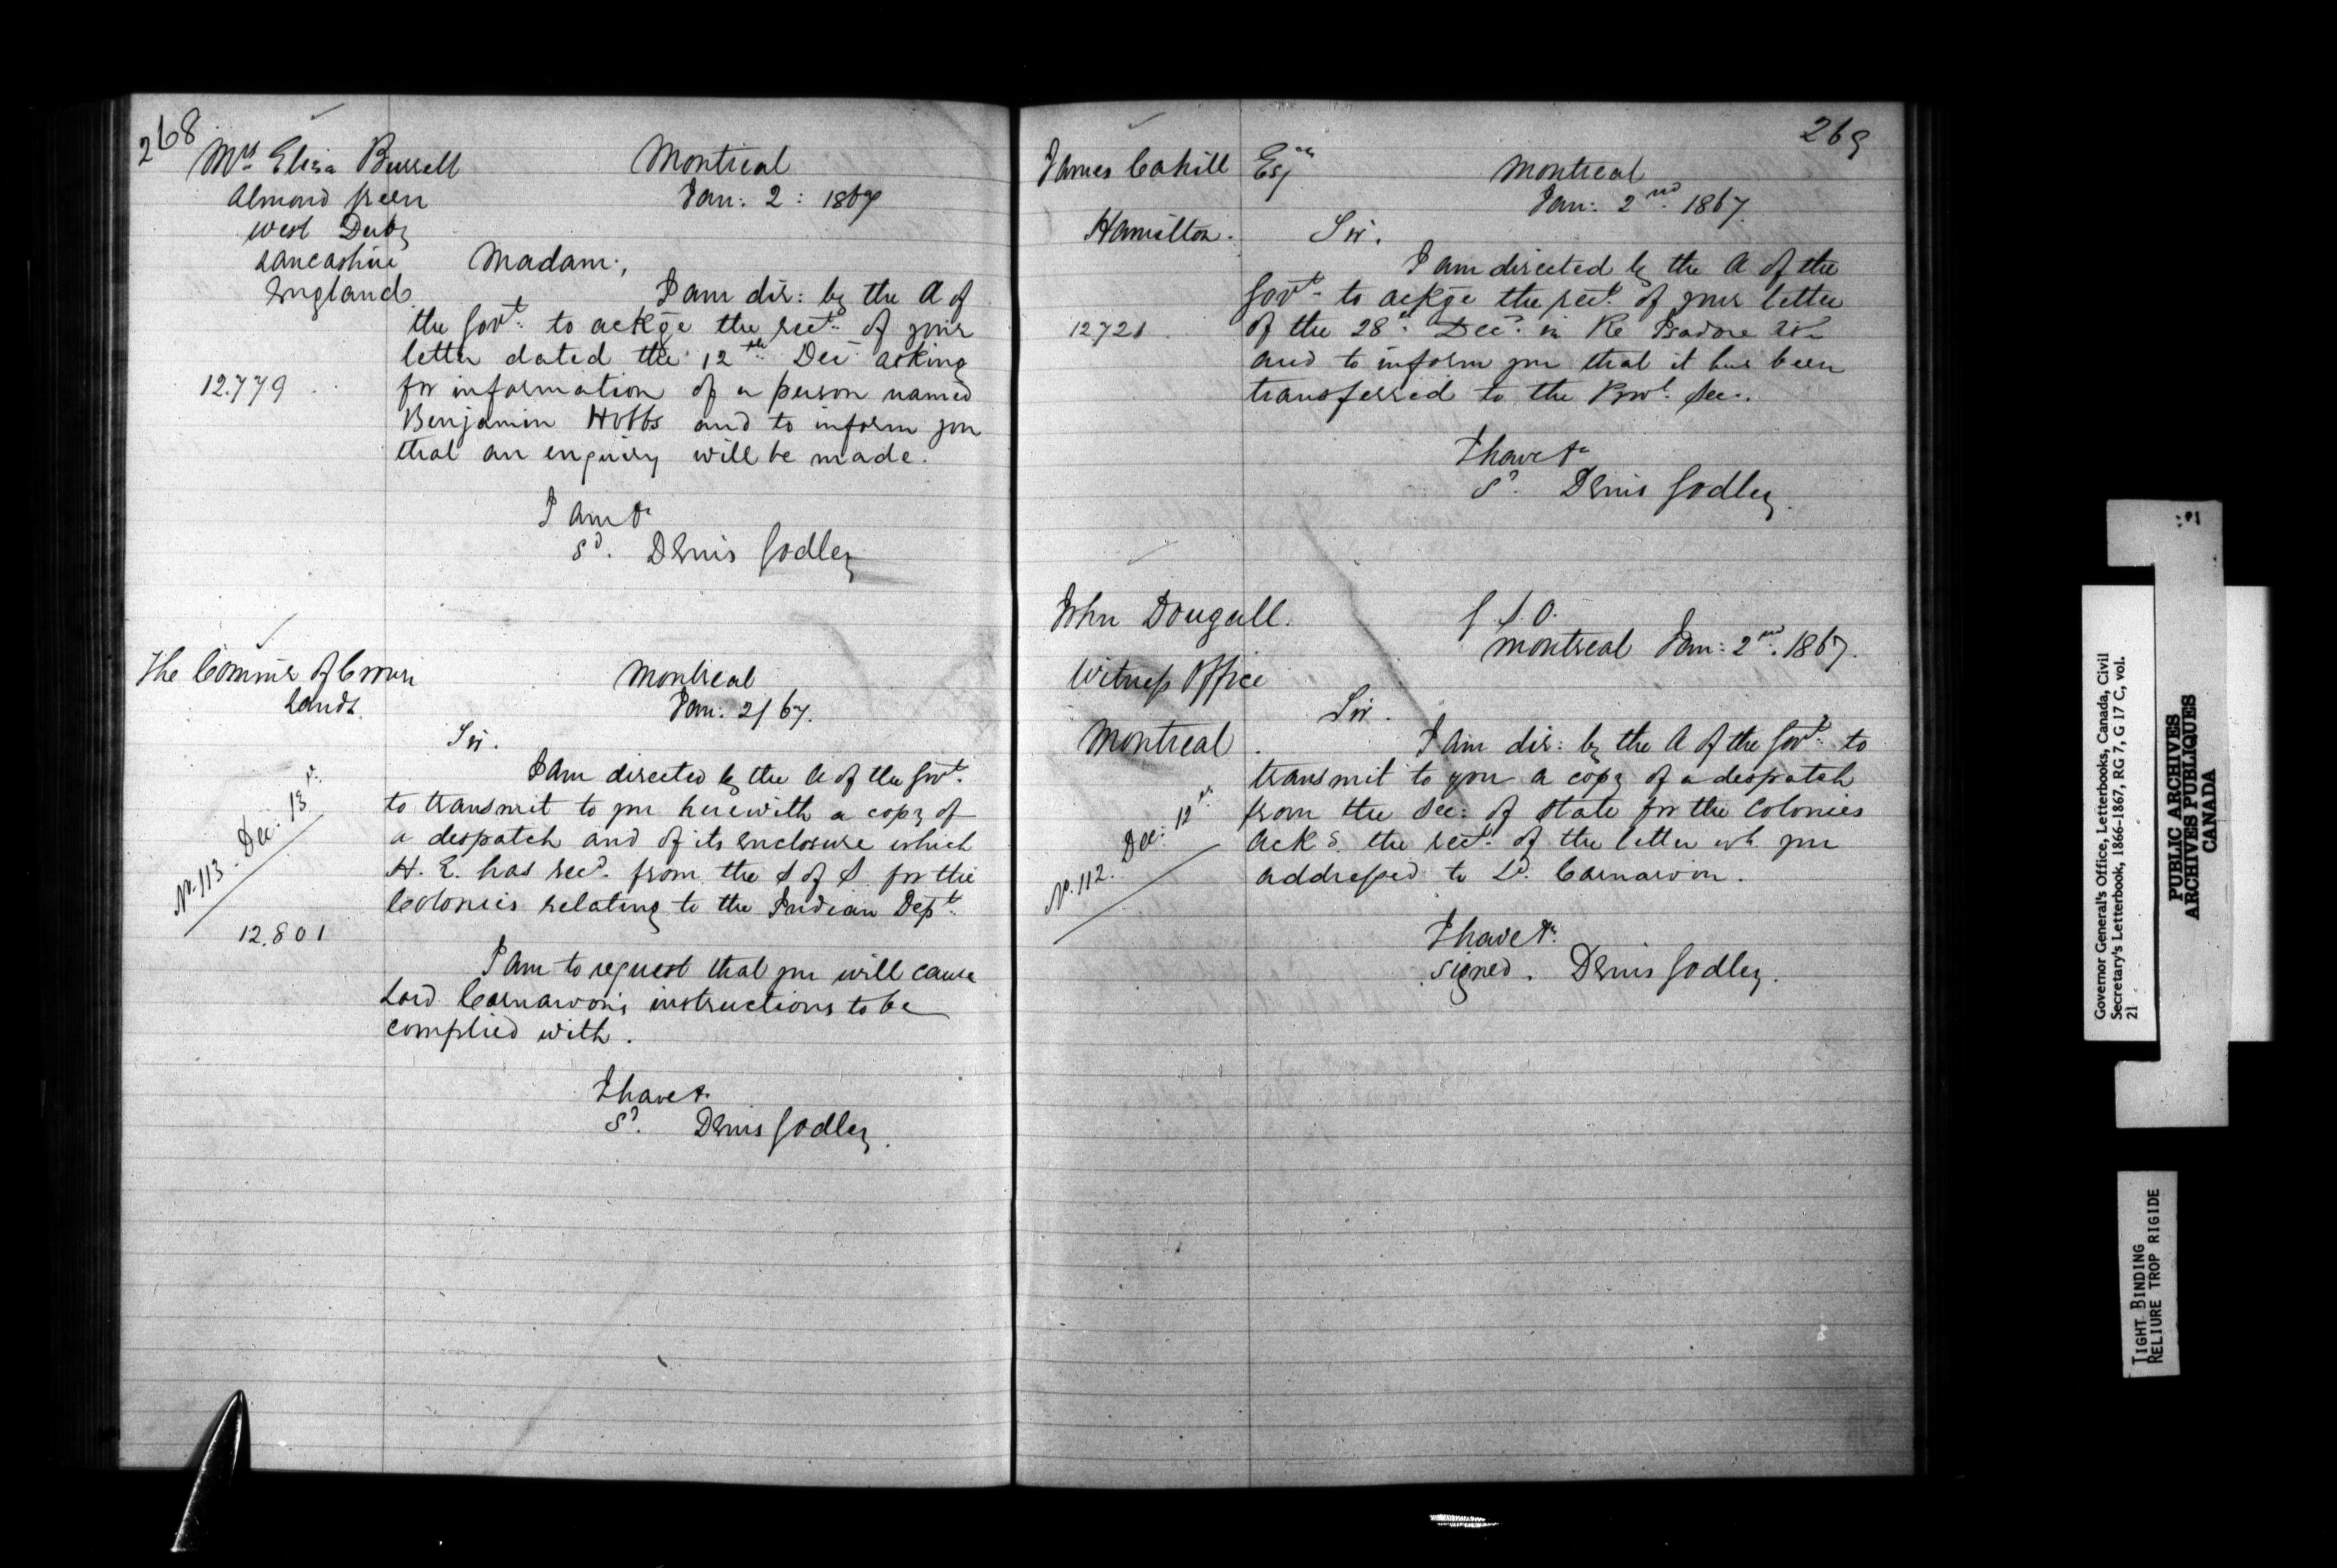 268
Mrs. Eliza Burrell
Almond Green
West Derby
Lancashire
England.
Montreal
Jan: 2: 1867
Madam,
I am dir: by the A of
the Govt. to ackge the rect. of your
letter dated the 12th Dec asking
12.779
for information of a person named
Benjamin Hobbs and to inform you
that an enquiry will be made.
I am &c
Sd. Denis Godley
The Commr of Crown
Lands.
Montreal
Jan: 2/67.
Sir.
I am directed by the A of the Govt.
to transmit to you herewith a copy of
a despatch and of its enclosure which
H. E. has recd. from the S of S for the
Colonies relating to the Indian Dept.
No. 113 - Dec: 13th.
12.801
I am to request that you will cause
Lord Carnarvon's instructions to be
complied with.
I have &c
Sd. Denis Godley.
269
James Cahill Esqre
Hamilton.
Montreal
Jan: 2nd. 1867.
Sir.
I am directed by the A of the
Govt. to ackge the rect. of your letter
12721.
of the 28th. Decr. in Re Isadore
and to inform you that it has been
transferred to the Prov. Sec.
I have &c
Sd. Denis Godley.
John Dougall.
Witness Office
Montreal.
G S. O.
Montreal Jan: 2nd. 1867.
Sir.
I am dir: by the A of the Govt. to
transmit to you a copy of a despatch
from the Sec: of State for the Colonies
ackg. the rect. of the letter wh. you
addressed to Ld. Carnarvon.
No. 112. Dec: 12th.
I have &c.
signed. Denis Godley.
Governor General's Office, Letterbooks, Canada, Civil
Secretary's Letterbook, 1866-1867, RG 7, G 17 C, vol.
21
PUBLIC ARCHIVES
ARCHIVES PUBLIQUES
CANADA
TIGHT BINDING
RELIURE TROP RIGIDE